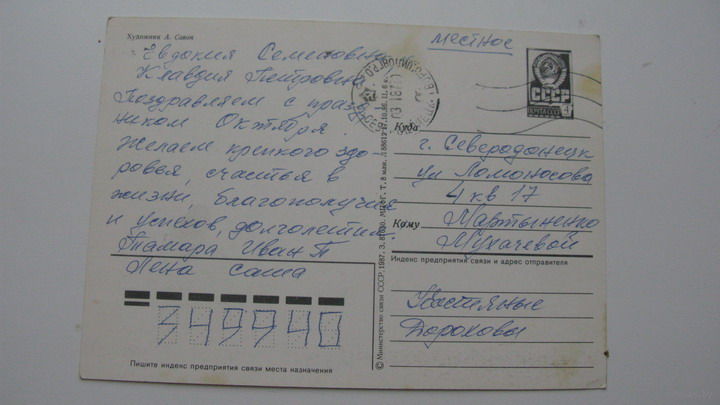 Художник А. Савин
Евдокия Семеновна
Клавдия Петровна
Поздравляем с празд-
ником Октября
Желаем крепкого здо-
ровья, счастья в
жизни, благополучия
и успехов, долголетия.
Тамара Иван П
Лена саша
349940
Пишите индекс предприятия связи места назначения
© Министерство связи СССР, 1987.
местное
СССР
Куда
г. Северодонецк
ул Ломоносова
4 кв 17
Кому
Мартыненко
Мухачевой
Индекс предприятия связи и адрес отправителя
Дороховы